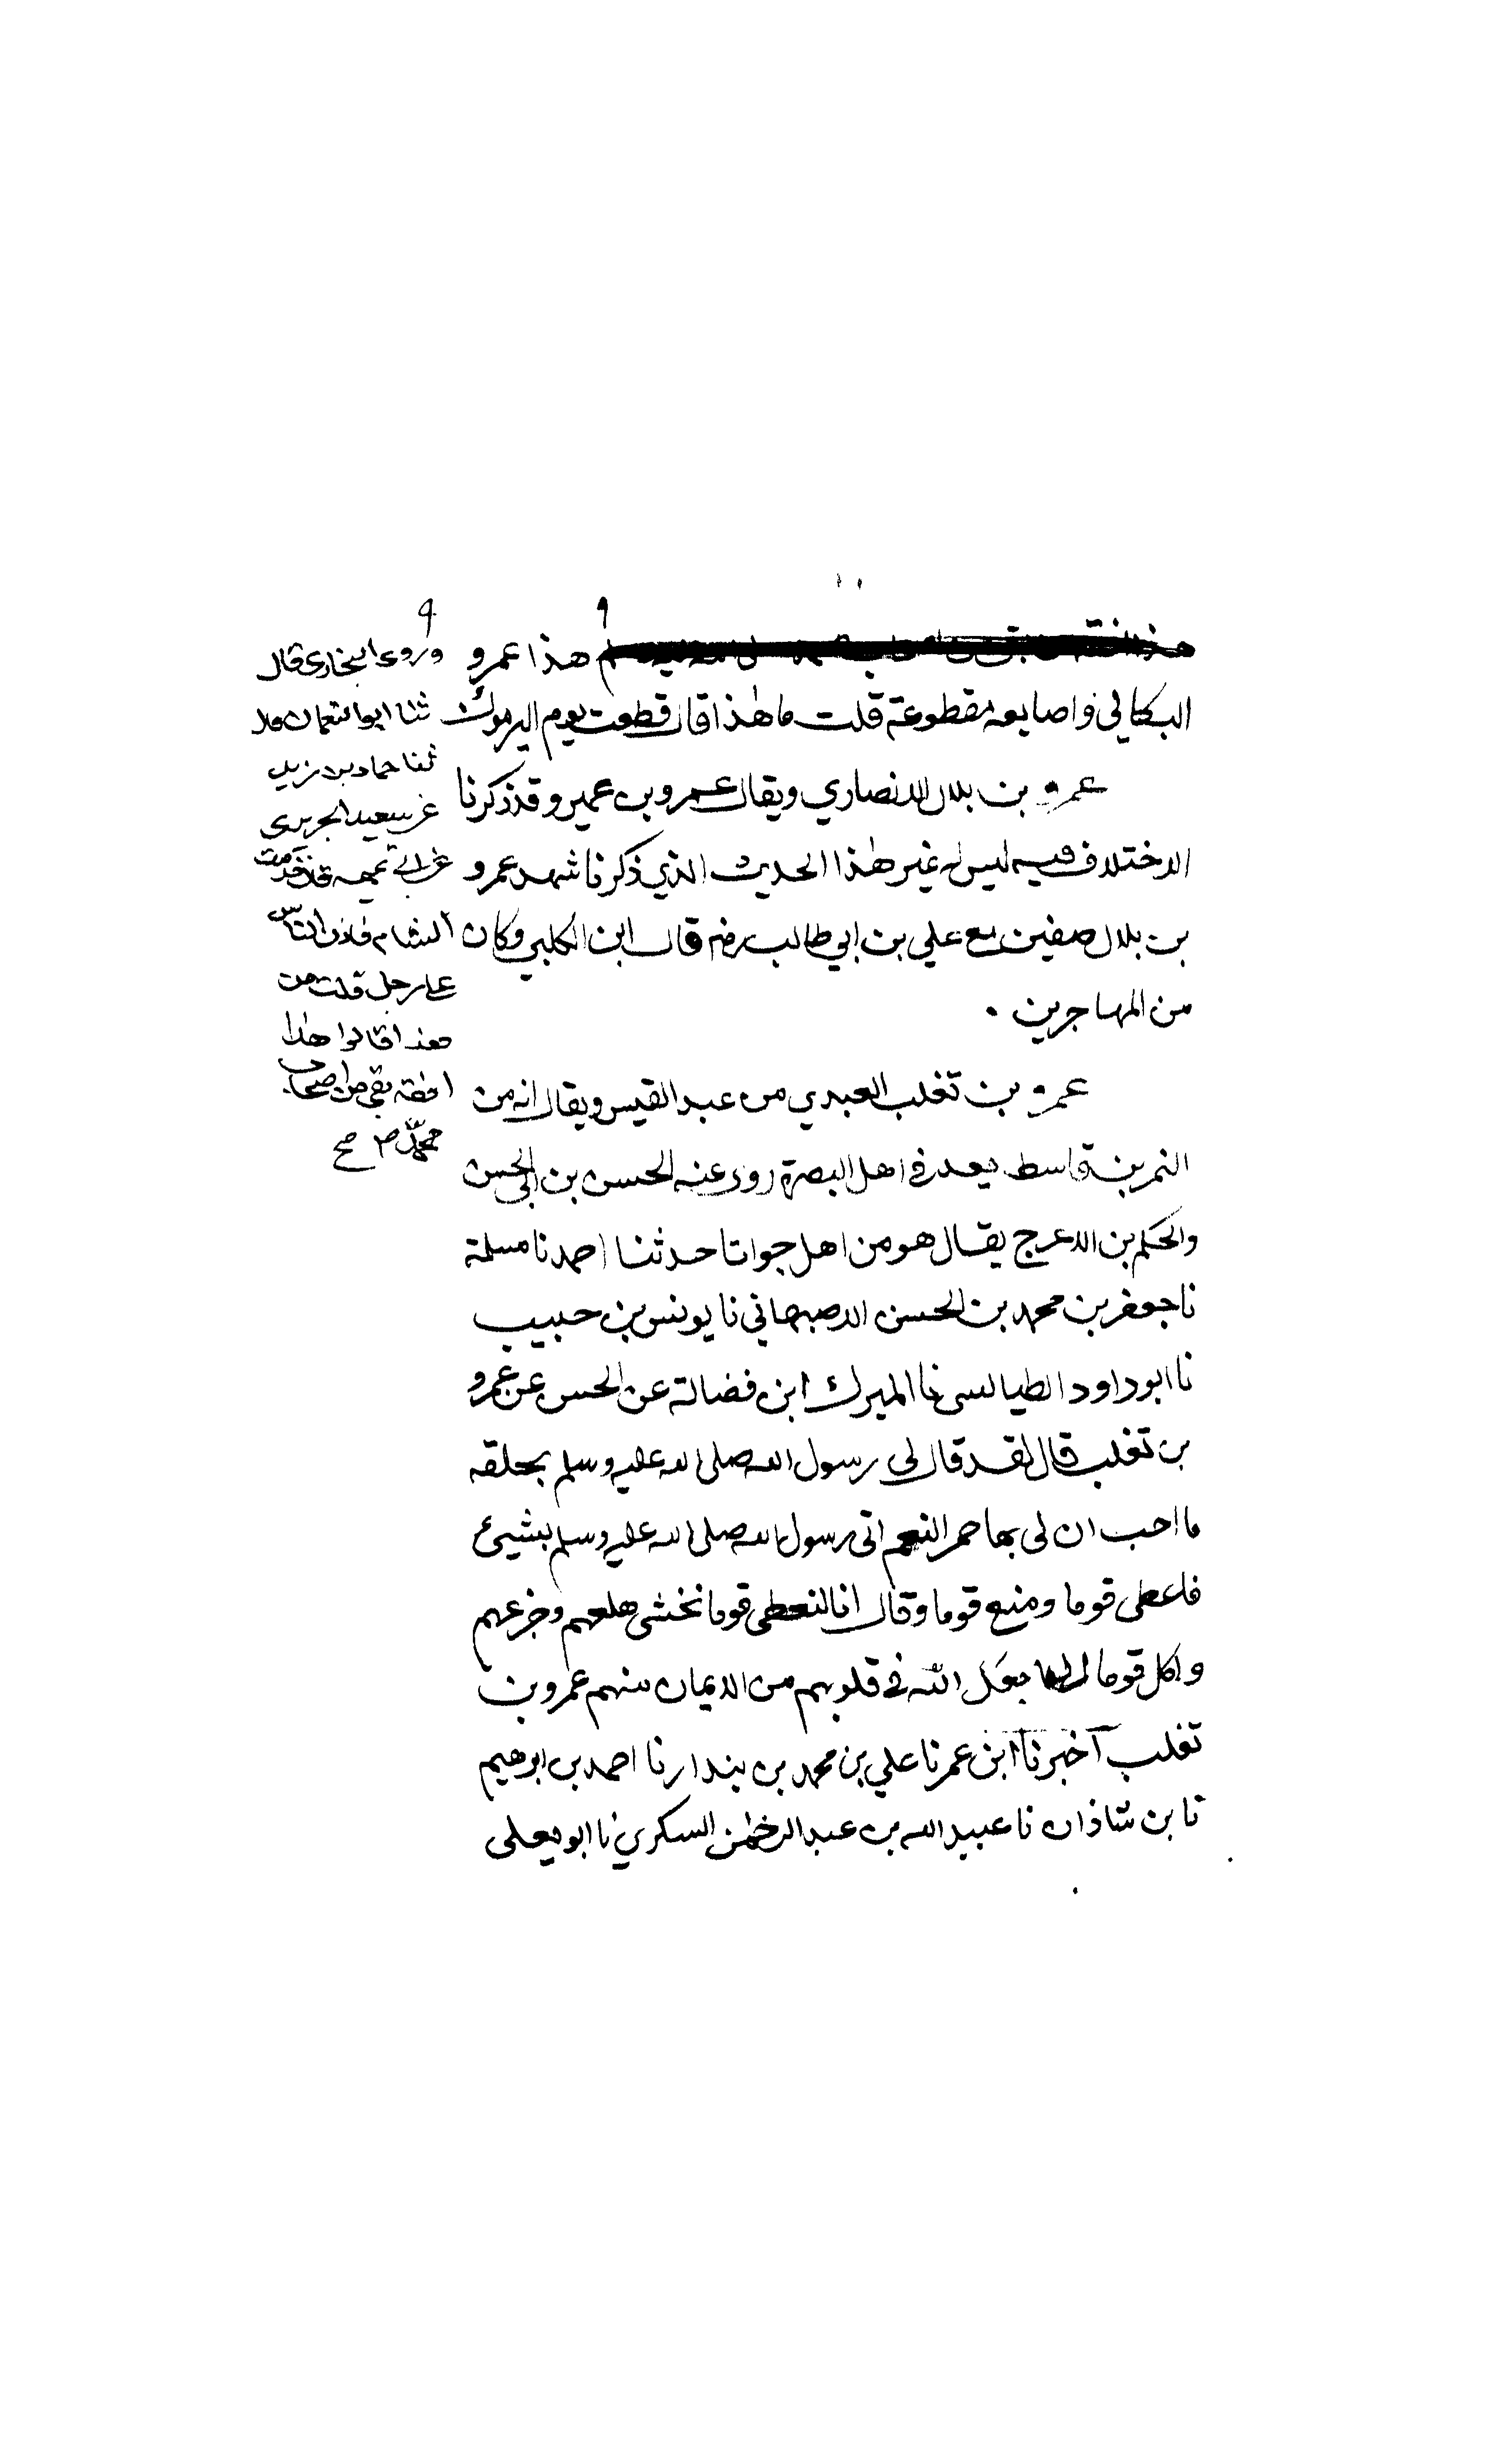 هذا عمرو
البكالي واصابعه مقطوعة قلت ما هٰذا قال قطعت يوم اليرموك
عمرو بن بلال الانصاري ويقال عمرو بن عمير وقد ذكرنا
الاختلاف فيه ليس له غير هٰذا الحديث الذي ذكرنا شهد عمرو
بن بلال صفين مع علي بن ابي طالب رضه قال ابن الكلبي وكان
من المهاجرين .
عمرو بن تغلب العبدي من عبد القيس ويقال انه من
النمر بن قاسط يعد في اهل البصرة روى عنه الحسن بن ابي الحسن
والحكم بن الاعرج يقال هو من اهل جواثا حدثنا احمد نا مسلمة
نا جعفر بن محمد بن الحسن الاصبهاني نا يونس بن حبيب
نا ابو داود الطيالسى نا المبرك ابن فضالة عن الحسن عن عمرو
بن تغلب قال لقد قال لى رسول الله صلى الله عليه وسلم بحلقه
ما احب ان لى بها حمر النعم اتى رسول الله صلى الله عليه وسلم بشيئ
فاعطى قوما ومنع قوما وقال انا لنعطى قوما نخشى هلعهم وجزعهم
واكل قوما جعل الله في قلوبهم من الايمان منهم عمرو بن
تغلب آخبرنا ابن عمر نا علي بن محمد بن بندار نا احمد بن ابرهيم
نا بن شاذان نا عبيد الله بن عبد الرحمٰن السكري نا ابو يعلى
وروى البخارى قال
ثنا ابو النعمان
ثنا حماد بن زيد
عن سعيد الجريرى
عن ابى تميمه قال قدمت
الشام فاذا الناس
على رجل قلت من
هذا قالوا هذا
افقه بقى من اصحاب
محمد ص صح